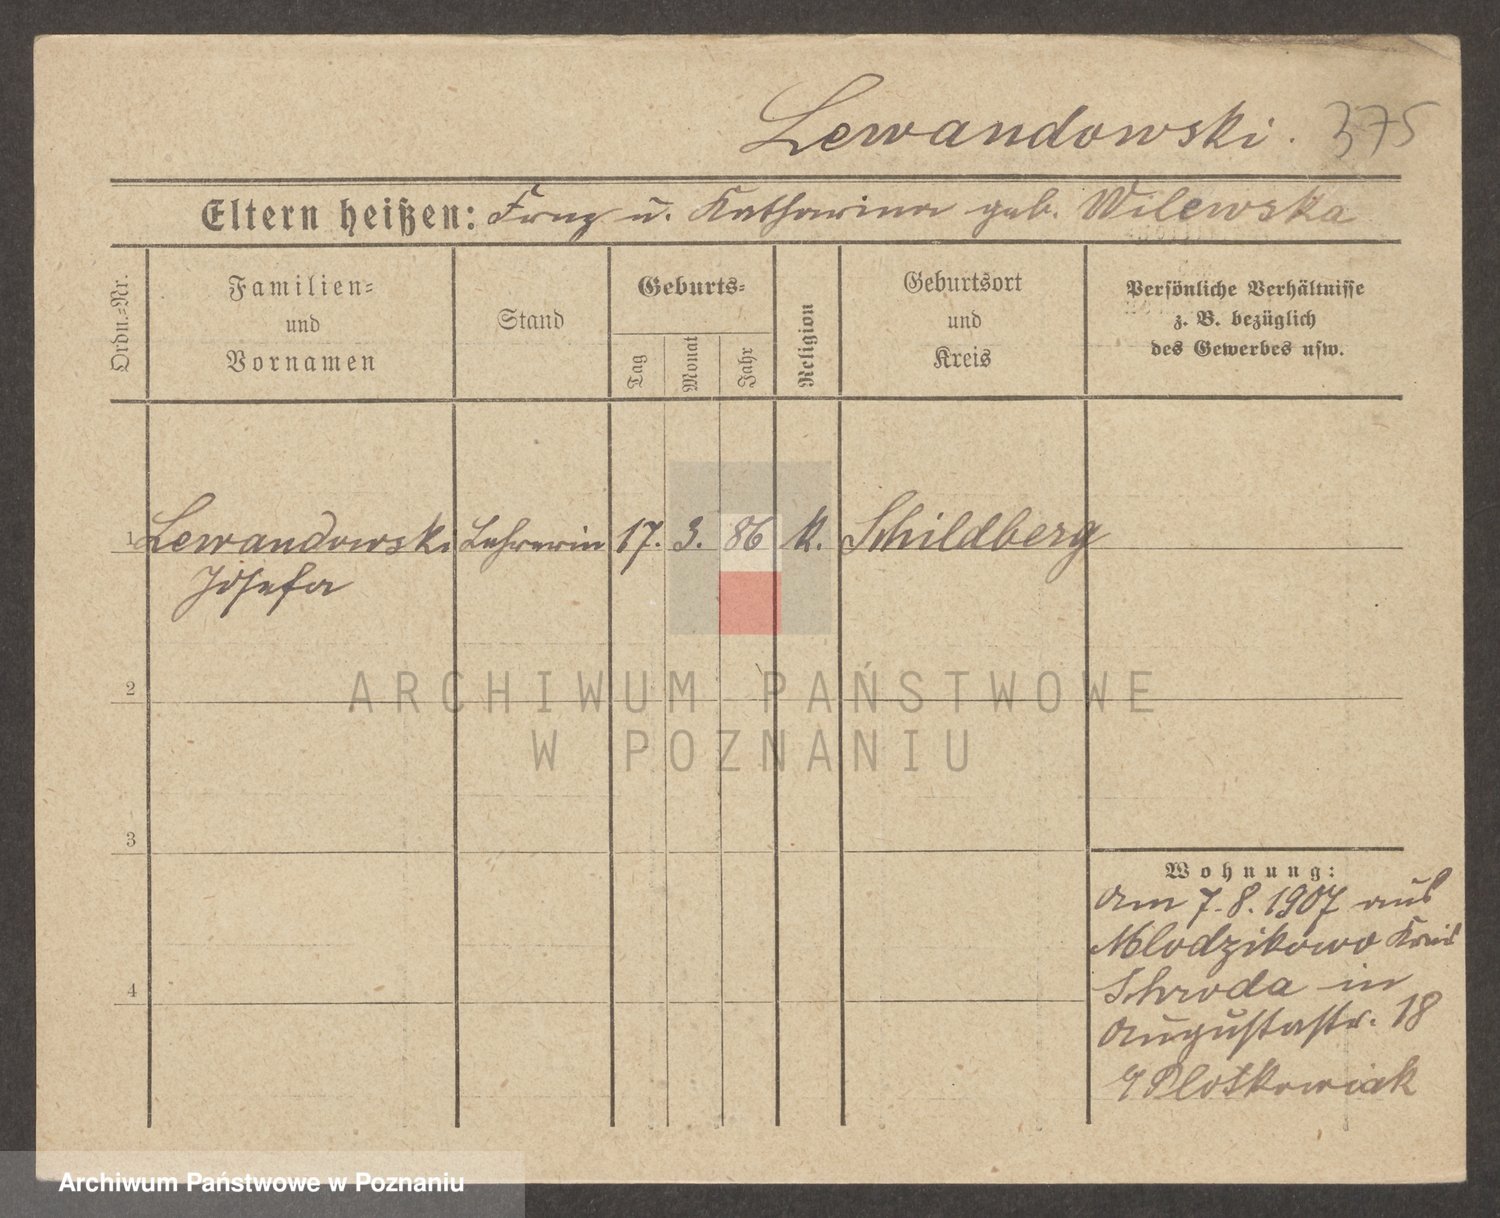 Lewandowski. 375
Eltern heißen: Franz u. Katharina geb. Wilewska
Ordn.-Nr.
Familien-
und
Vornamen
Stand
Geburts-
Tag
Monat
Jahr
Religion
Geburtsort
und
Kreis
Persönliche Verhältnisse
z. B. bezüglich
des Gewerbes usw.
1 Lewandowski Lehrerin 17. 3. 86 k. Schildberg
Josefa
2
ARCHIWUM PAŃSTWOWE
W POZNANIU
3
Wohnung:
am 7.8.1907 aus
Mlodzikowo Kreis
Schroda in
Augustastr. 18
Plotkowiak
4
Archiwum Państwowe w Poznaniu